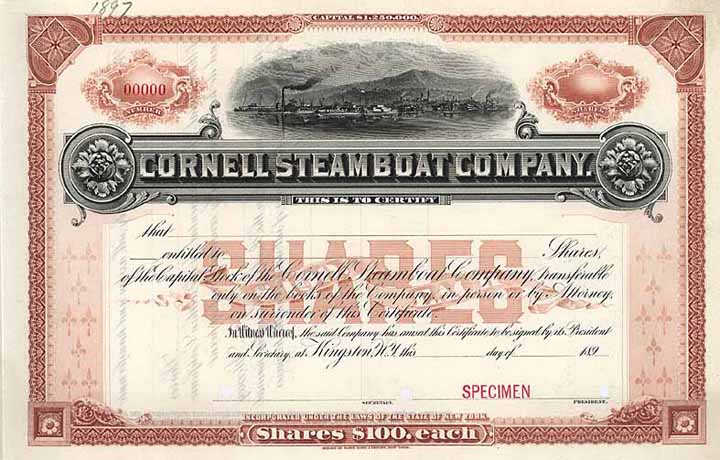 1897
CAPITAL $1,250,000.
00000
NUMBER
SHARES
CORNELL STEAMBOAT COMPANY.
THIS IS TO CERTIFY
that
entitled to Shares
SHARES
of the Capital Stock of the Cornell Steamboat Company, transferable
only on the books of the Company, in person or by Attorney,
on surrender of this Certificate.
In Witness Whereof, the said Company has caused this Certificate to be signed by its President
and Secretary, at Kingston, N.Y. this day of 189
SPECIMEN
SECRETARY. PRESIDENT.
INCORPORATED UNDER THE LAWS OF THE STATE OF NEW YORK.
Shares $100, each